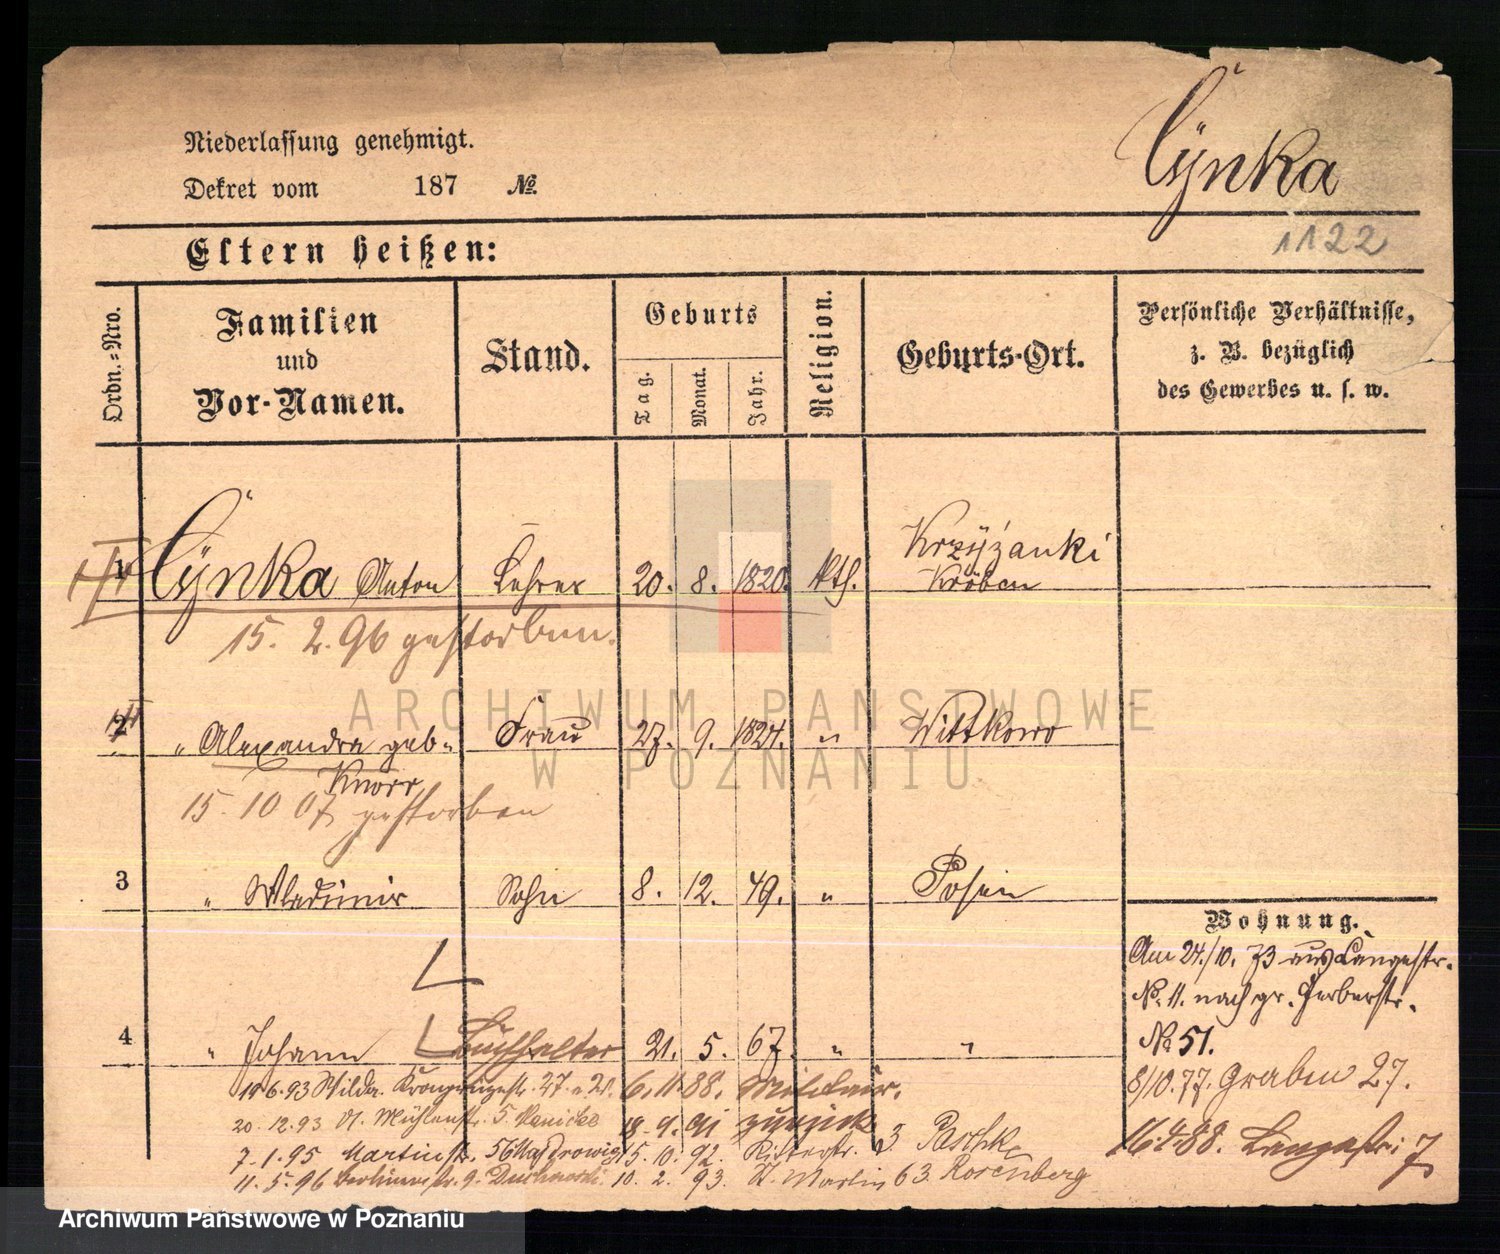 Cÿnka
Niederlassung genehmigt.
Dekret vom 187 №.
1122
Eltern heißen:
Ordn.=Nro.
Familien
und
Vor-Namen.
Stand.
Geburts
Tag.
Monat.
Jahr.
Religion.
Geburts-Ort.
Persönliche Verhältnisse,
z. B. bezüglich
des Gewerbes u. s. w.
1 Cÿnka Anton Lehrer 20. 8. 1820. kth. Krzÿżanki
Kröben
15. 2. 96 gestorben.
2 " Alexandra geb. Frau 27. 9. 1824. " Wittkowo
Knorr
15. 10 07 gestorben
3 " Wladimir Sohn 8. 12. 49. " Posen
Wohnung.
Am 24./10. 73 aus Langestr.
No. 11. nach gr. Gerberstr.
No 51.
8/10.77. Graben 27.
16.4.88. Langestr: 7
4 " Johann Buchhalter 21. 5. 67. " "
19.6.93 Wilda. Kronprinzenstr. 6.11.88. Militair.
20.12.93 Mühlenstr. 5 18.9.91 zurück
7.1.95 Martinstr. 56 15.10.92. Ritterstr. 3
11.5.96 Berlinerstr. 9. 10.2.93. St. Martin 63. Rosenberg
ARCHIWUM PAŃSTWOWE
W POZNANIU
Archiwum Państwowe w Poznaniu